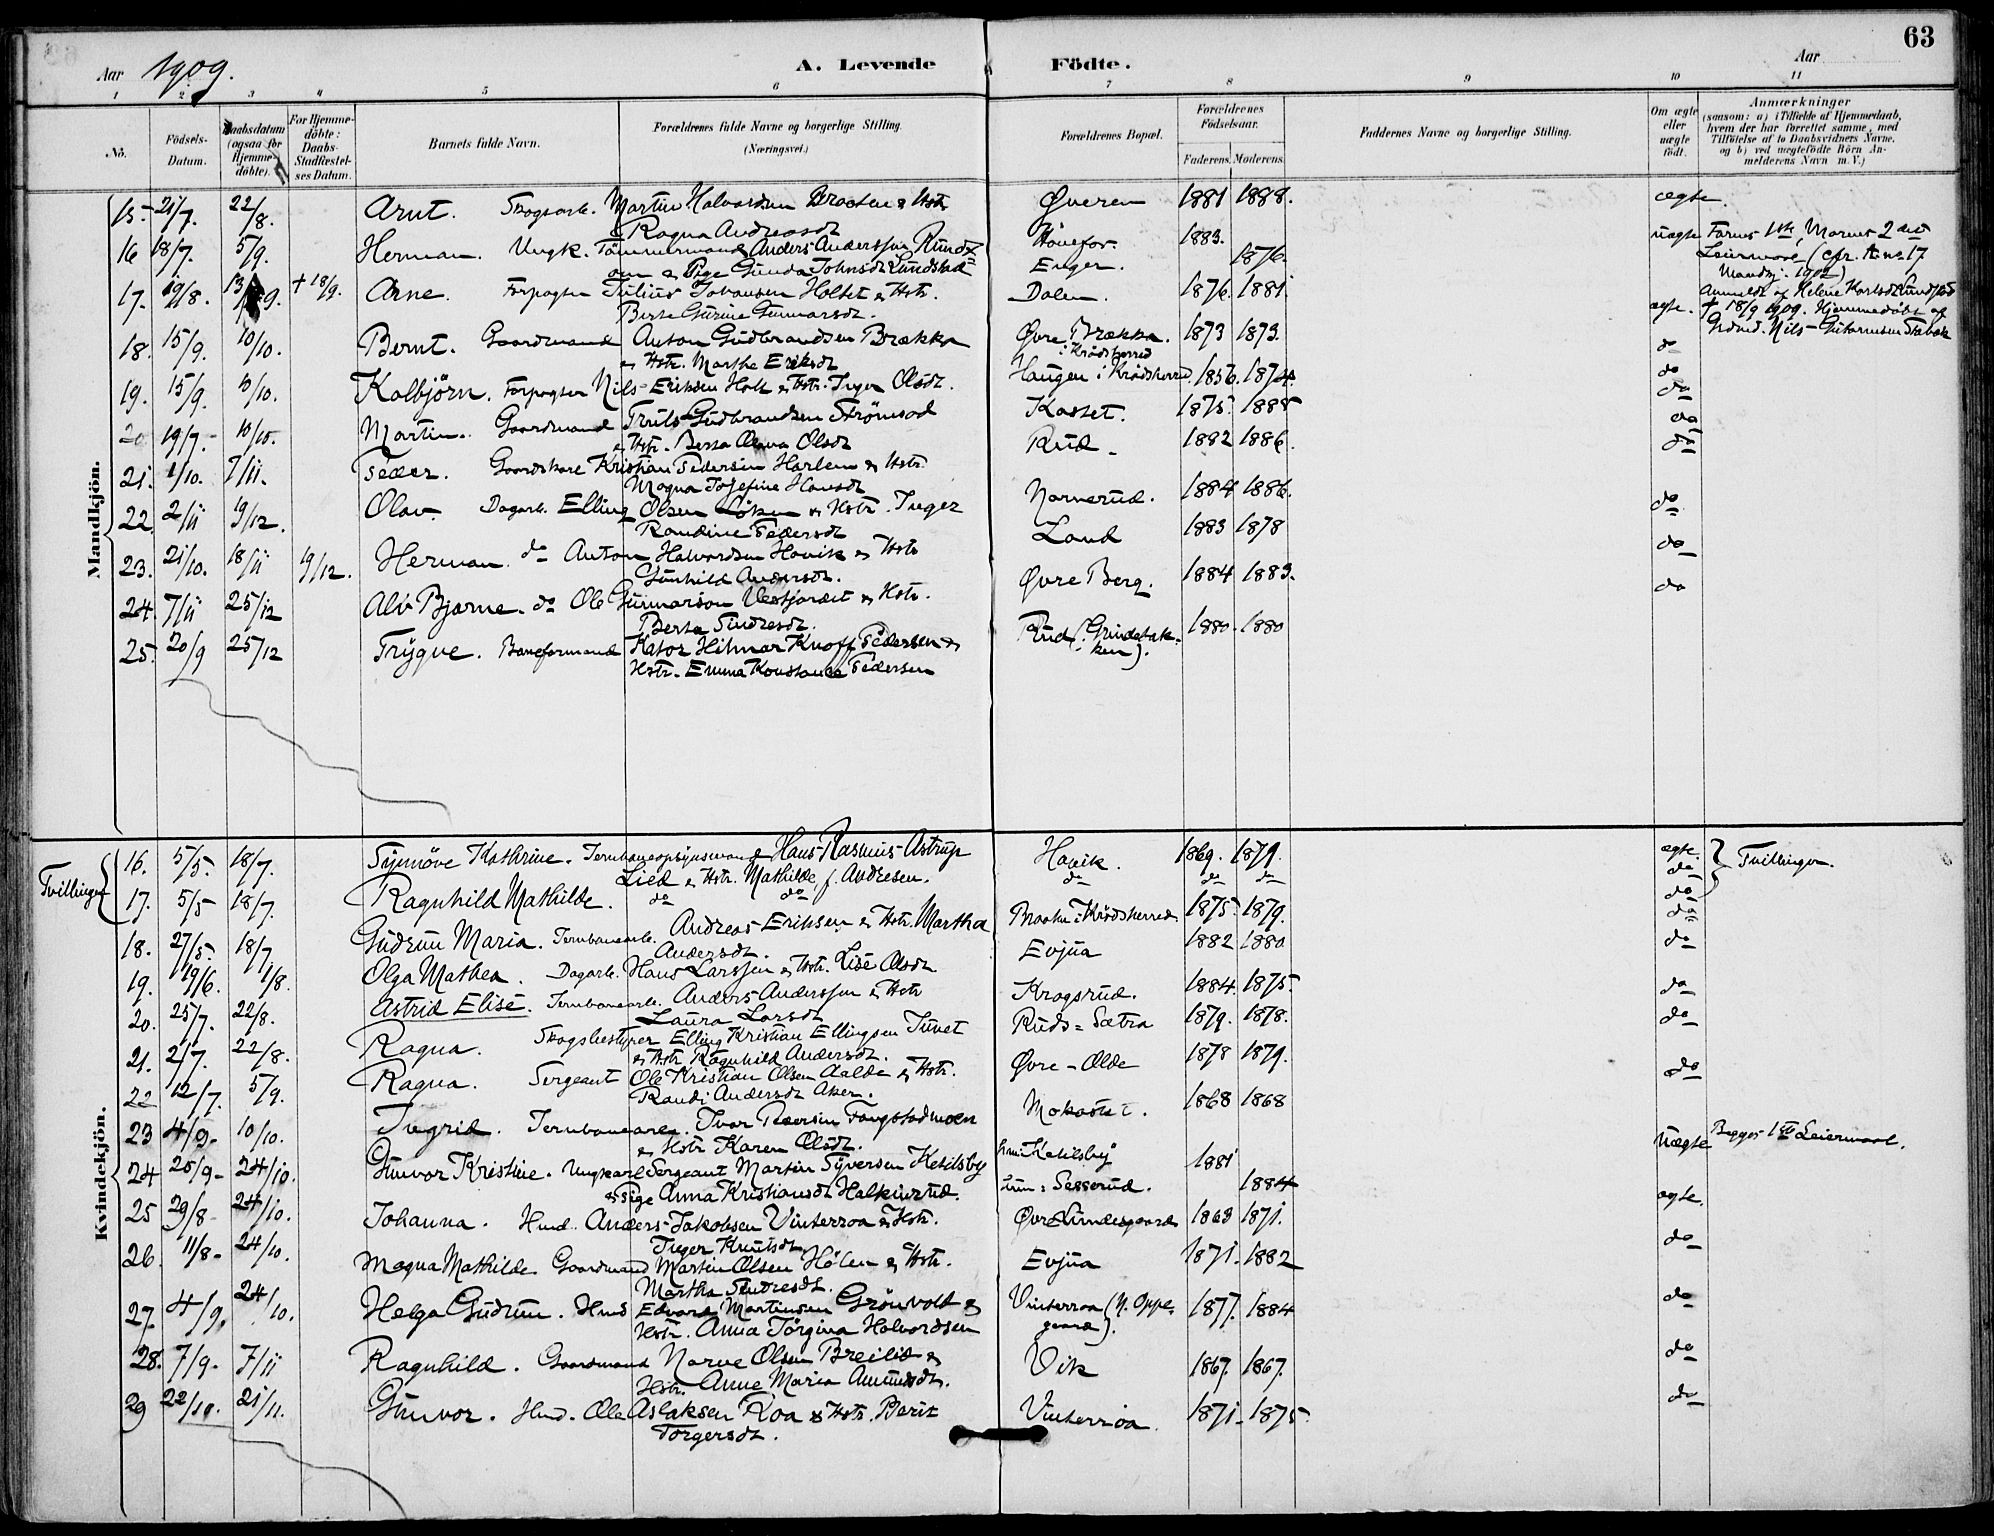 63
Aar 1909.
A. Levende Födte.
Aar
1 2 3 4 5 6 7 8 9 10 11
No.
Födsels-Datum.
Daabsdatum (ogsaa for Hjemmedöbte).
For Hjemmedöbte: Daabs-Stadfæstelses Datum.
Barnets fulde Navn.
Forældrenes fulde Navne og borgerlige Stilling. (Næringsvei.)
Forældrenes Bopæl.
Forældrenes Födselsaar.
Faderens. Moderens.
Faddernes Navne og borgerlige Stilling.
Om ægte eller uægte födt.
Anmærkninger
(saasom: a) i Tilfælde af Hjemmedaab,
hvem der har forrettet samme, med
Tilföielse af to Daabsvidners Navne,
og b) ved uægtefödte Börn Anmelderens Navn m. V.)
Mandkjön.
15. 21/7. 22/8. Arnt. Skogsarb. Martin Halvorsen Braaten & Hstr. Øveren 1881 1888. ægte.
Ragna Andreasdt
16 18/7. 5/9. Herman. Ungk. Tømmermand Anders Anderssen Rund- Hönefos. 1883. uægte Farens 1ste, Morens 2det
om & Pige Gunda Johnsdt Lundstad Enger. 1876. Leiermaal (cfr. A no 17
Mandkj. 1902)
17. 19/8. 13/9. † 18/9. Arne. Forpagter Julius Johansen Holtet & Hstr. Dalen. 1876. 1881. Anmeldt af Helene Karlsdt Lundstad
Berte Gurine Gunnarsdt. ægte. † 18/9 1909. Hjemmedöbt af
Grdmd. Nils Guttormsen Stavok
18. 15/9. 10/10. Bernt. Gaardmand Anton Gudbrandsen Brække Øvre Brækka. 1873 1873. do
& Hstr. Marthe Eriksdt i Krødsherred
19. 15/9. 10/10. Kolbjörn. Forpagter Nils Eriksen Holt & Hstr. Inger Olsdt. Haugen i Krødsherred 1856. 1874. do
20 19/7. 10/10. Martin. Gaardmand Truls Gudbrandsen Strömsod Kasset. 1875. 1885 do
& Hstr. Berta Olava Olsdt
21. 1/10. 7/11. Peder. Gaardskarl Kristian Pedersen Harlem & Hstr. Rud 1882 1886. do
Magna Josefine Hansdt
22 2/11 9/12. Olav. Dagarb. Elling Olsen Løken & Hstr. Inger Narverud. 1884 1886. do
Randine Pedersdt
23. 21/10. 18/11 9/12. Herman. do Anton Halvorsen Hovik & Hstr Land 1883 1878 do
Gunhild Andersdt.
24. 7/11 25/12 Alv Bjarne. do Ole Gunnarson Vestjordet & Hstr. Øvre Berg. 1884 1883. do
Berta Sindresdt.
25. 20/9 25/12 Trygve. Baneformand Kator Hilmar Knoff Pedersen & Rud (Grindebak- 1880. 1880
Hstr. Emma Konstance Pedersen ken).
Kvindekjön.
Tvillinger
16. 5/5. 18/7. Synnöve Kathrine. Jernbaneopsynsmand Hans Rasmus Astrup Hovik. 1869. 1879. ægte. Tvillinger.
Lied & Hstr. Mathilde f. Andresen.
17. 5/5 18/7. Ragnhild Mathilde. do do do do do do
18. 27/5. 18/7 Gudrun Maria. Jernbanearb. Andreas Eriksen & Hstr. Martha Braaten i Krødsherred 1875. 1879. do
Andersdt.
19. 19/6. 1/8. Olga Mathea. Dagarb. Hans Larssen & Hstr. Lise Olsdt Evjua 1882 1880 do
20. 25/7. 22/8. Astrid Elise. Jernbanearb. Anders Anderssen & Hstr Krogsrud. 1884. 1875. do
Laura Larsdt
21. 2/7. 22/8. Ragna. Skogsbestyrer Elling Kristian Ellingsen Juvet Ruds-Sætra 1879. 1878. do
& Hstr Ragnhild Andersdt.
22 12/7. 5/9. Ragna. Sergeant Ole Kristian Olsen Aalde & Hstr. Øvre-Olde 1878 1879. do
Randi Andersdt Aker.
23 4/9. 10/10. Ingrid. Jernbanearb. Ivar Pedersen Fangstadmoen Mokastet. 1868 1868
& Hstr Karen Olsdt.
24 20/9 24/10. Gunvor Kristine. Ungkarl Sergeant Martin Syversen Ketilsby han: Ketilsby 1881 Uægte Begges 1ste Leiermaal.
& Pige Anna Kristiansdt Halkinrud. hun: Sesserud. 1884
25 29/8 24/10. Johanna. Hmd. Anders Jakobsen Vinterroa & Hstr. Øvre Lindesgaard 1868 1871. ægte.
Inger Knutsdt
26. 11/8 24/10. Magna Mathilde Gaardmand Martin Olsen Hølen & Hstr. Evjua 1871. 1882 do
Martha Sindresdt.
27. 4/9. 24/10. Helga Gudrun. Hmd Edvard Martinsen Grönvold & Vinterroa (N. Oppe- 1877. 1884 do
Hstr. Anna Jörgina Halvordsen gaard).
28. 7/9. 7/11 Ragnhild. Gaardmand Narve Olsen Breilid & Vik 1867. 1867. do
Hstr. Anne Maria Amundsdt.
29 22/10. 21/11. Gunvor. Hmd. Ole Aslaksen Roa & Hstr. Berit Vinterroa. 1871. 1875. do
Torgersdt.